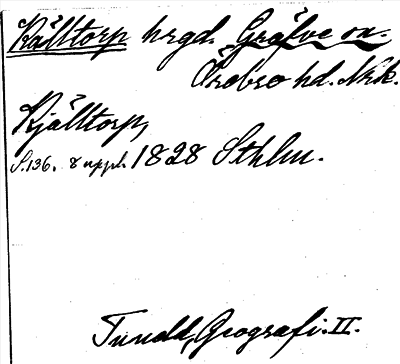 Källtorp hrgd. Gräfve sn.
Örebro hd. Nrk.
Kjälltorp,
S. 136. 8 uppl. 1828 Sthlm.
Tuneld, Geografi. II.